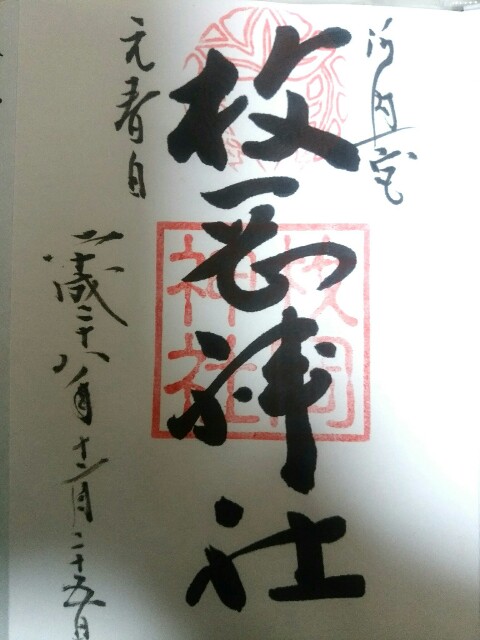 河内一宮
枚岡神社
元春日
平成二十八年十二月二十五日
枚岡
神社